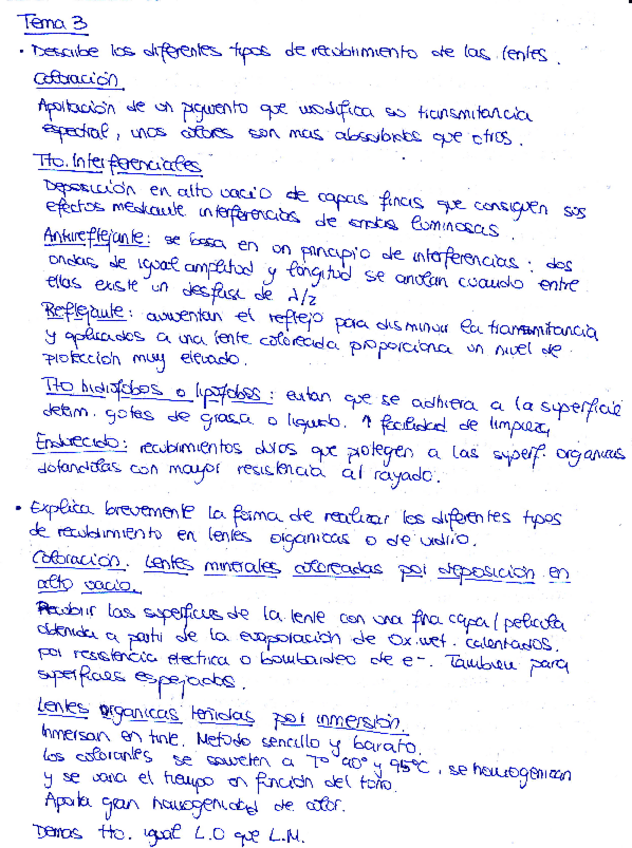 Tema 3
• Describe los diferentes tipos de recubrimiento de las lentes.
Coloración.
Aportación de un pigmento que modifica su transmitancia
espectral, unos colores son mas absorbidos que otros.
Tto. Interferenciales
Deposición en alto vacio de capas finas que consiguen sus
efectos mediante interferencias de ondas luminosas.
Antireflejante: se basa en un principio de interferencias: dos
ondas de igual amplitud y longitud se anulan cuando entre
ellas existe un desfase de λ/2
Reflejante: aumentan el reflejo para disminuir la transmitancia
y aplicados a una lente coloreada proporciona un nivel de
protección muy elevado.
Tto hidrófobos o lipófobos: evitan que se adhiera a la superficie
determ. gotas de grasa o liquido. ↑ facilidad de limpieza
Endurecido: recubrimientos duros que protegen a las superf. organicas
dotandolas con mayor resistencia al rayado.
• Explica brevemente la forma de realizar los diferentes tipos
de recubrimiento en lentes organicas o de vidrio.
Coloración. Lentes minerales coloreadas por deposición en
alto vacio.
Recubrir las superficies de la lente con una fina capa/pelicula
obtenida a partir de la evaporación de Ox. met. calentados.
por resistencia electrica o bombardeo de e-. Tambien para
superficies espejados.
Lentes organicas teñidas por inmersión.
Inmersan en tinte. Metodo sencillo y barato.
Los colorantes se someten a Tº 90º y 95ºC, se homogenizan
y se varia el tiempo en función del tono.
Aporta gran homogenidad de color.
Demas tto. igual L.O que L.M.